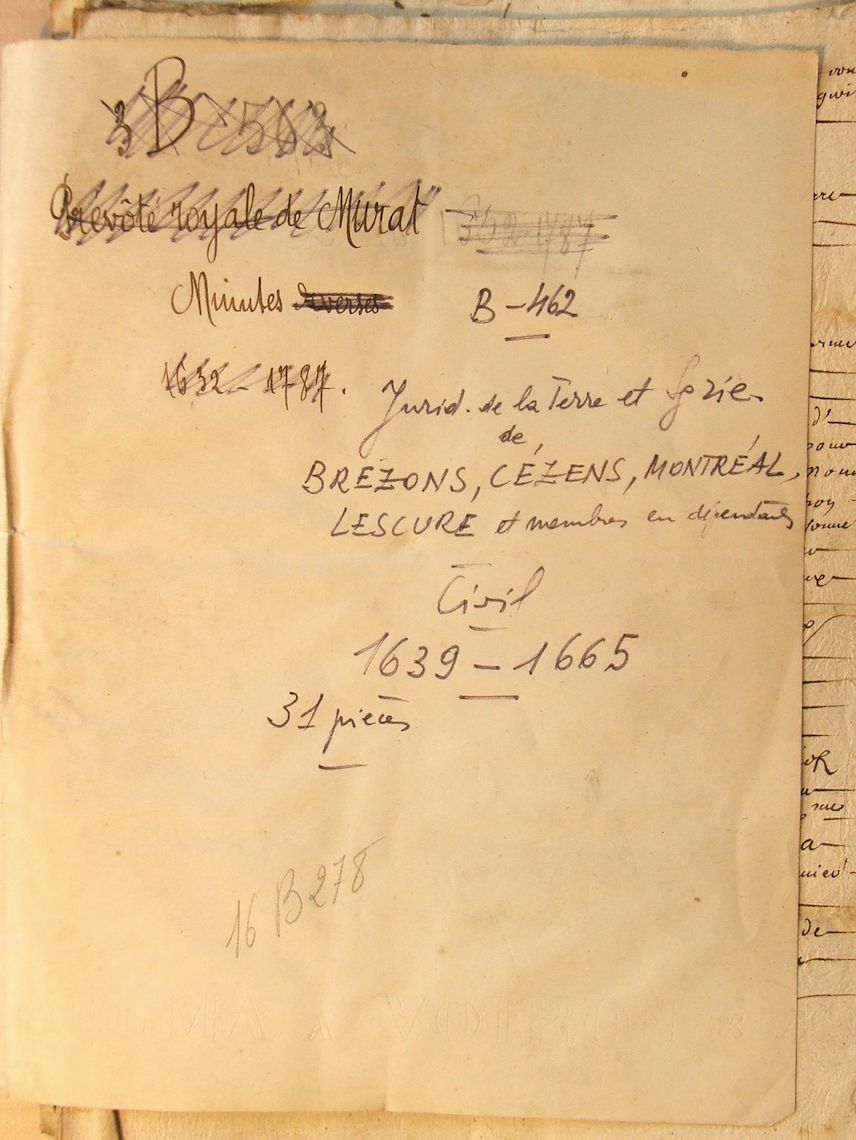 3 B 563
Prévôté royale de Murat 1652-1787
Minutes diverses B - 462
1652 - 1787.
Jurid. de la Terre et Sgrie
de
BREZONS, CÉZENS, MONTRÉAL,
LESCURE et membres en dépendants
Civil
1639 - 1665
31 pièces
16 B 278